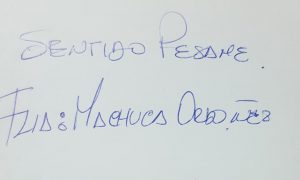 SENTIDO PESAME.
FLIA: MACHUCA ORDOÑEZ